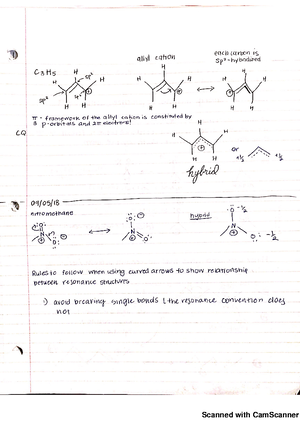 C₃H₅
allyl cation
each carbon is
sp²-hybridized
H H H H H
sp²
sp²
π - framework of the allyl cation is constituted by
3 p-orbitals and 2π electrons!
CQ
or
+½ +½
hybrid
09/05/18
nitromethane
hybrid
-½
-½
Rules to follow when using curved arrows to show relationship
between resonance structures
1) avoid breaking single bonds (the resonance convention does
not
Scanned with CamScanner